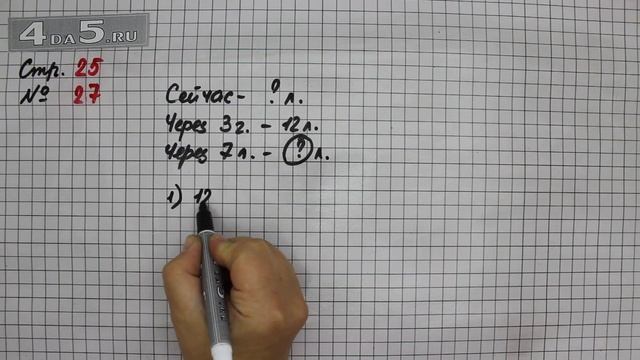 4DA5.RU
Стр. 25
№ 27
Сейчас - ? л.
Через 3 г. - 12 л.
Через 7 л. - ? л.
1) 12